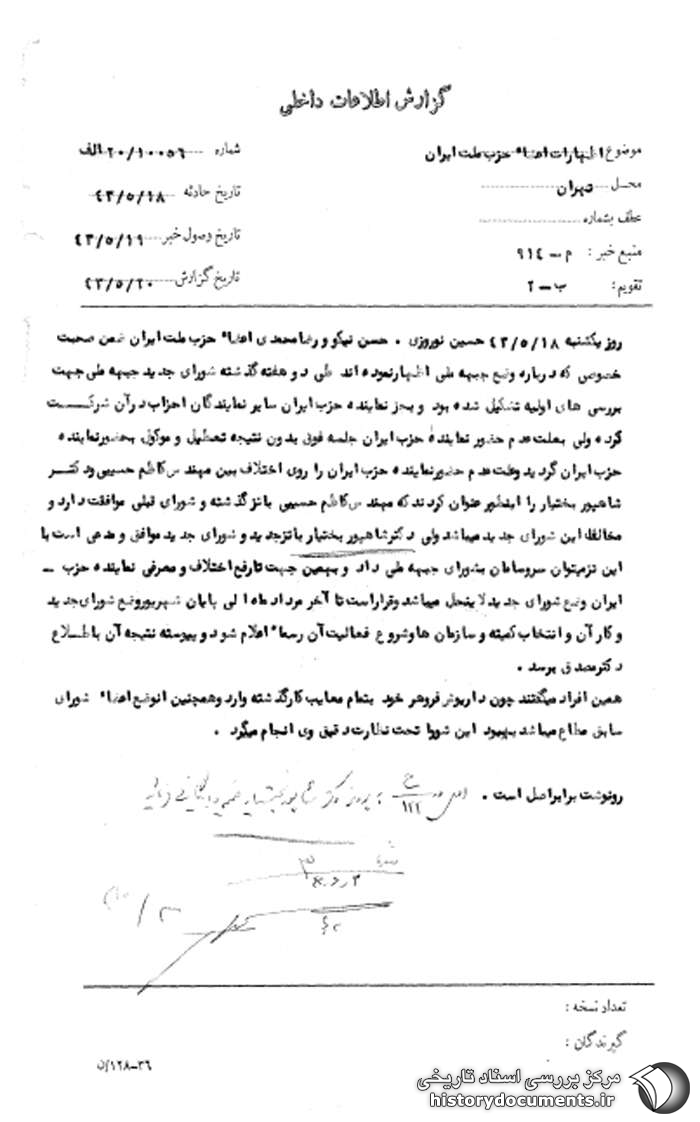 گزارش اطلاعات داخلی
موضوع اظهارات اعضاء حزب ملت ایران
شماره ۲۰/۱۰۰۵۶ الف
محل تهران
تاریخ حادثه ۴۳/۵/۱۸
عطف بشماره
تاریخ وصول خبر ۴۳/۵/۱۹
منبع خبر : م – ۹۱۴
تاریخ گزارش ۴۳/۵/۲۰
تقویم : ب – ۲
روز یکشنبه ۴۳/۵/۱۸ حسین نوروزی . حسن نیکو و رضا محمدی اعضاء حزب ملت ایران ضمن صحبت
خصوص که درباره وضع جبهه ملی اظهار نموده اند طی دو هفته گذشته شورای جدید جبهه ملی جهت
بررسی های اولیه تشکیل شده بود و بجز نماینده حزب ایران سایر نمایندگان احزاب در آن شرکت
کرده ولی بعلت عدم حضور نماینده حزب ایران جلسه فوق بدون نتیجه تعطیل و موکول بحضور نماینده
حزب ایران گردید وعلت عدم حضور نماینده حزب ایران را روی اختلاف بین مهندس کاظم حسیبی ود کتر
شاهپور بختیار را اینطور عنوان کردند که مهندس کاظم حسیبی با تز گذشته و شورای قبلی موافقت دارد و
مخالف این شورای جدید میباشد ولی دکتر شاهپور بختیار با تز جدید و شورای جدید موافق و مدعی است با
این تز میتوان سروسامان بشورای جبهه ملی داد و بهمین جهت تا رفع اختلاف و معرفی نماینده حزب –
ایران وضع شورای جدید لاینحل میباشد وقرار است تا آخر مرداد ماه الی پایان شهریور وضع شورای جدید
و کار آن و انتخاب کمیته و سازمان ها وشروع فعالیت آن رسماً اعلام شود و پیوسته نتیجه آن باطلاع
دکتر مصدق برسد .
همین افراد میگفتند چون داریوش فروهر خود بتمام معایب کار گذشته وارد وهمچنین از وضع اعضاء شورای
سابق مطلع میباشد بهبود این شورا تحت نظارت دقیق وی انجام میگرد .
رونوشت برابر اصل است . اصل در ع/۱۲۲ پرونده دکتر شاپور بختیار
تعداد نسخه :
گیرندگان :
۳۶–۱۲۸/ن
مرکز بررسی اسناد تاریخی
historydocuments.ir